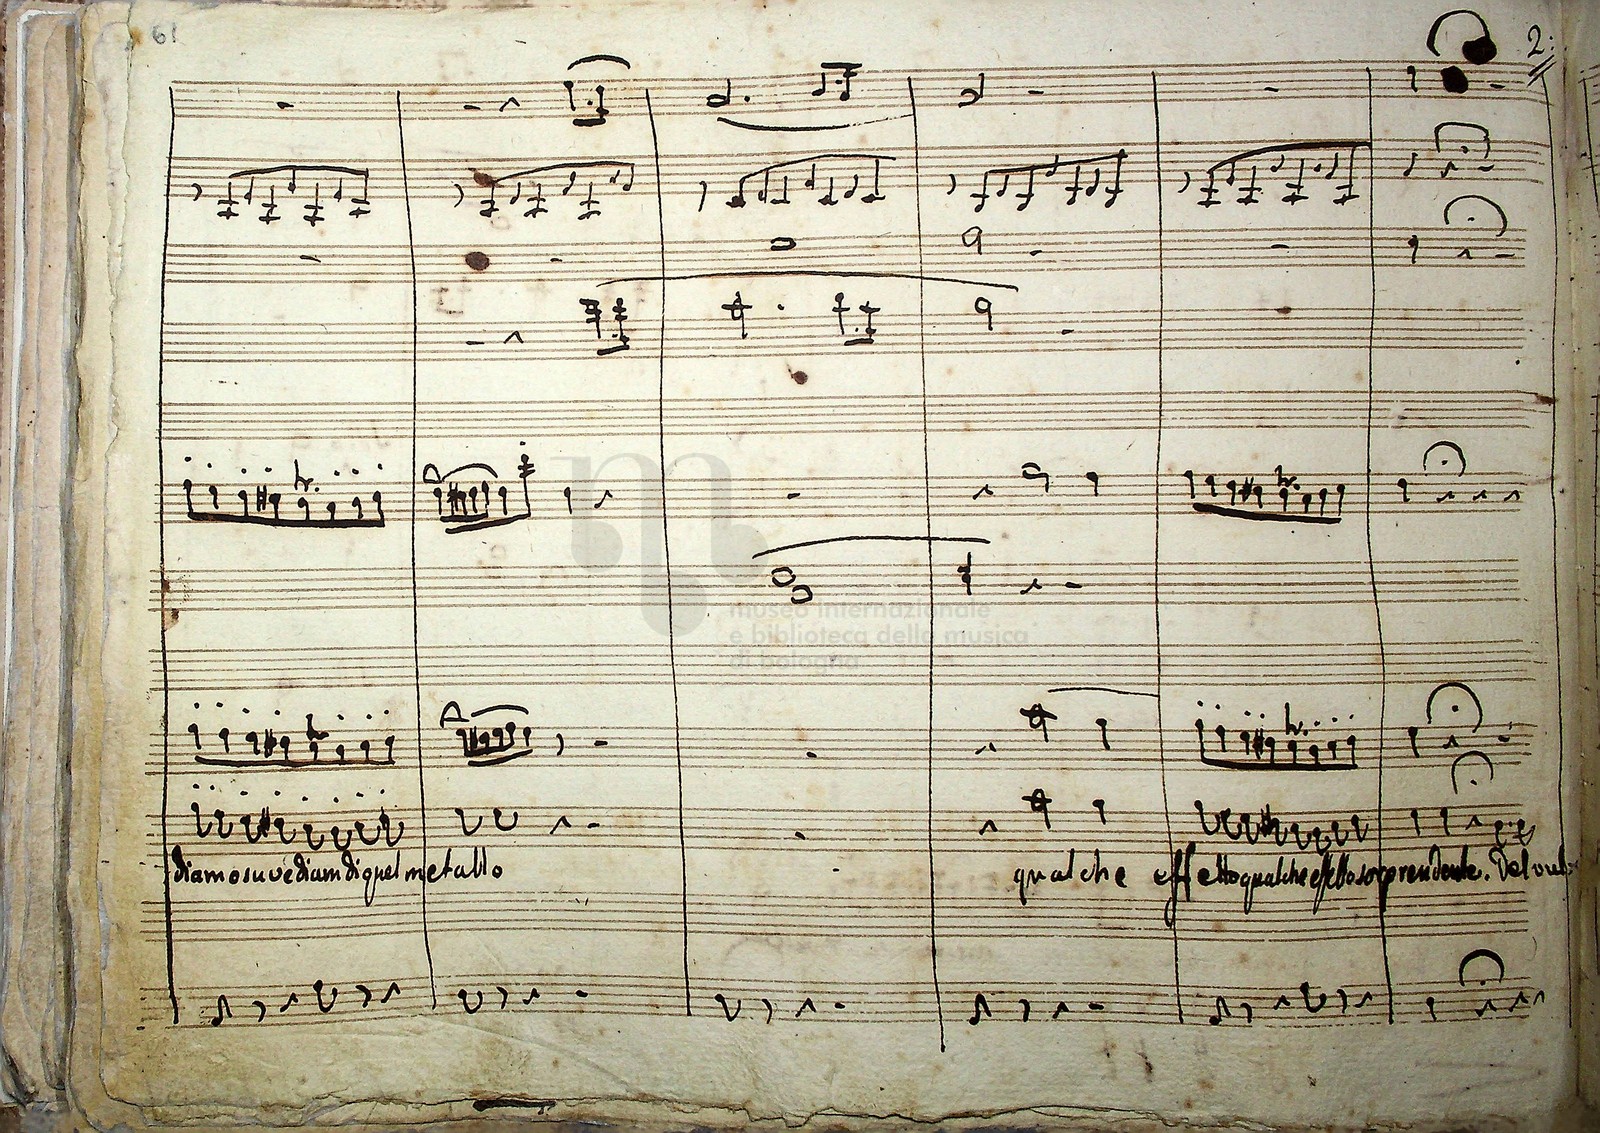 61
2:
museo internazionale
e biblioteca della musica
di bologna
diamo su vediam di quel metallo qualche effetto qualche effetto sorprendente. Del vul